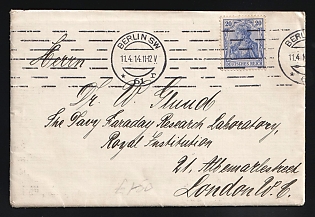 BERLIN SW
11.4.14.11-12 V
* 61 r
20 20
DEUTSCHES REICH
11.4.1
Herrn
Dr. W.
The Davy Faraday Research Laboratory,
Royal Institution
21. Albemarlestreet
London W. C.